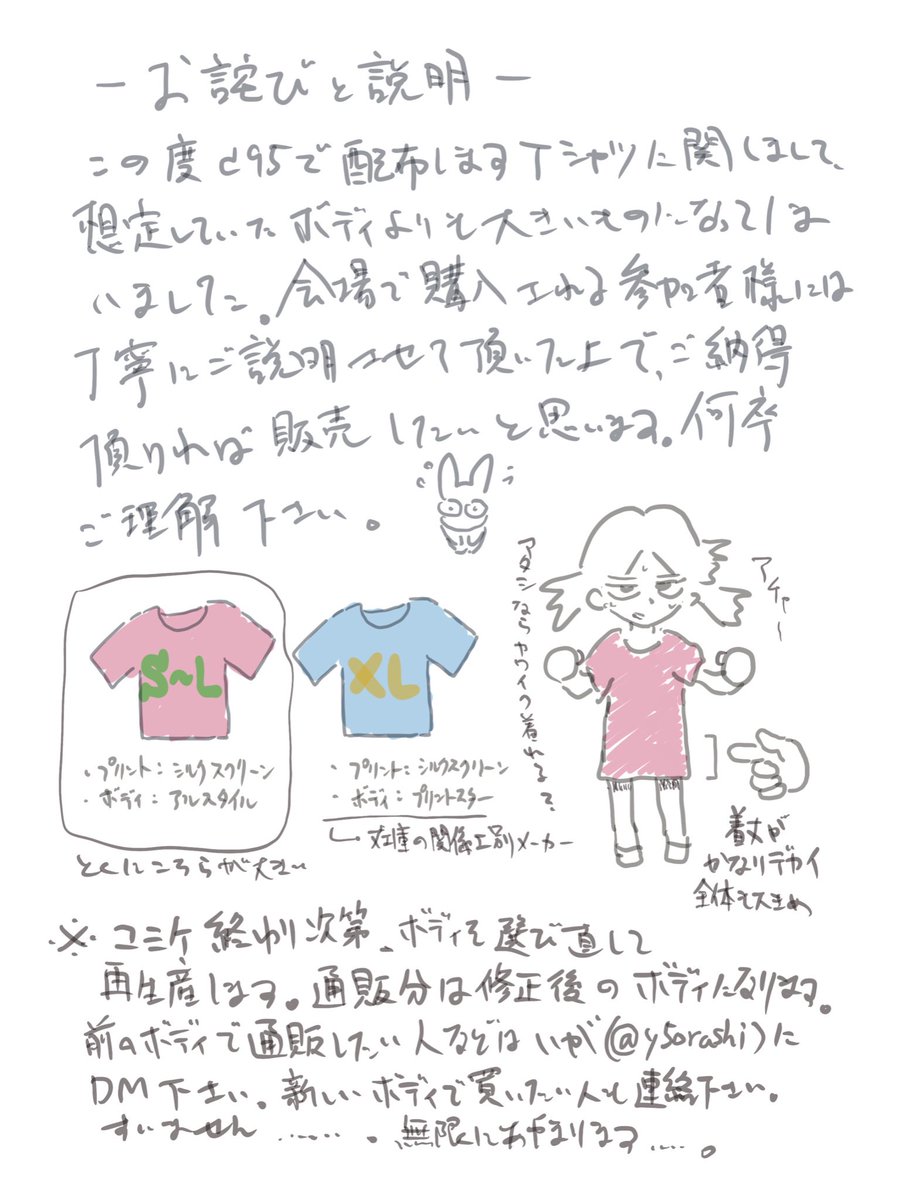 －お詫びと説明－
この度c95で配布しますTシャツに関しまして、
想定していたボディよりも大きいものになってしま
いました。会場で購入される参加者様には
丁寧にご説明させて頂いた上で、ご納得
頂ければ販売したいと思います。何卒
ご理解下さい。
S～L
・プリント：シルクスクリーン
・ボディ：アルスタイル
とくにこちらが大きい
XL
・プリント：シルクスクリーン
・ボディ：プリントスター
在庫の関係上別メーカー
アタシならカワイく着れる？
アチャー
着丈が
かなりデカイ
全体も大きめ
※コミケ終わり次第、ボディを選び直して
再生産します。通販分は修正後のボディになります。
前のボディで通販したい人などはいが(@y5orashi)に
DM下さい。新しいボディで買いたい人も連絡下さい。
すいません……。無限にあやまります……。